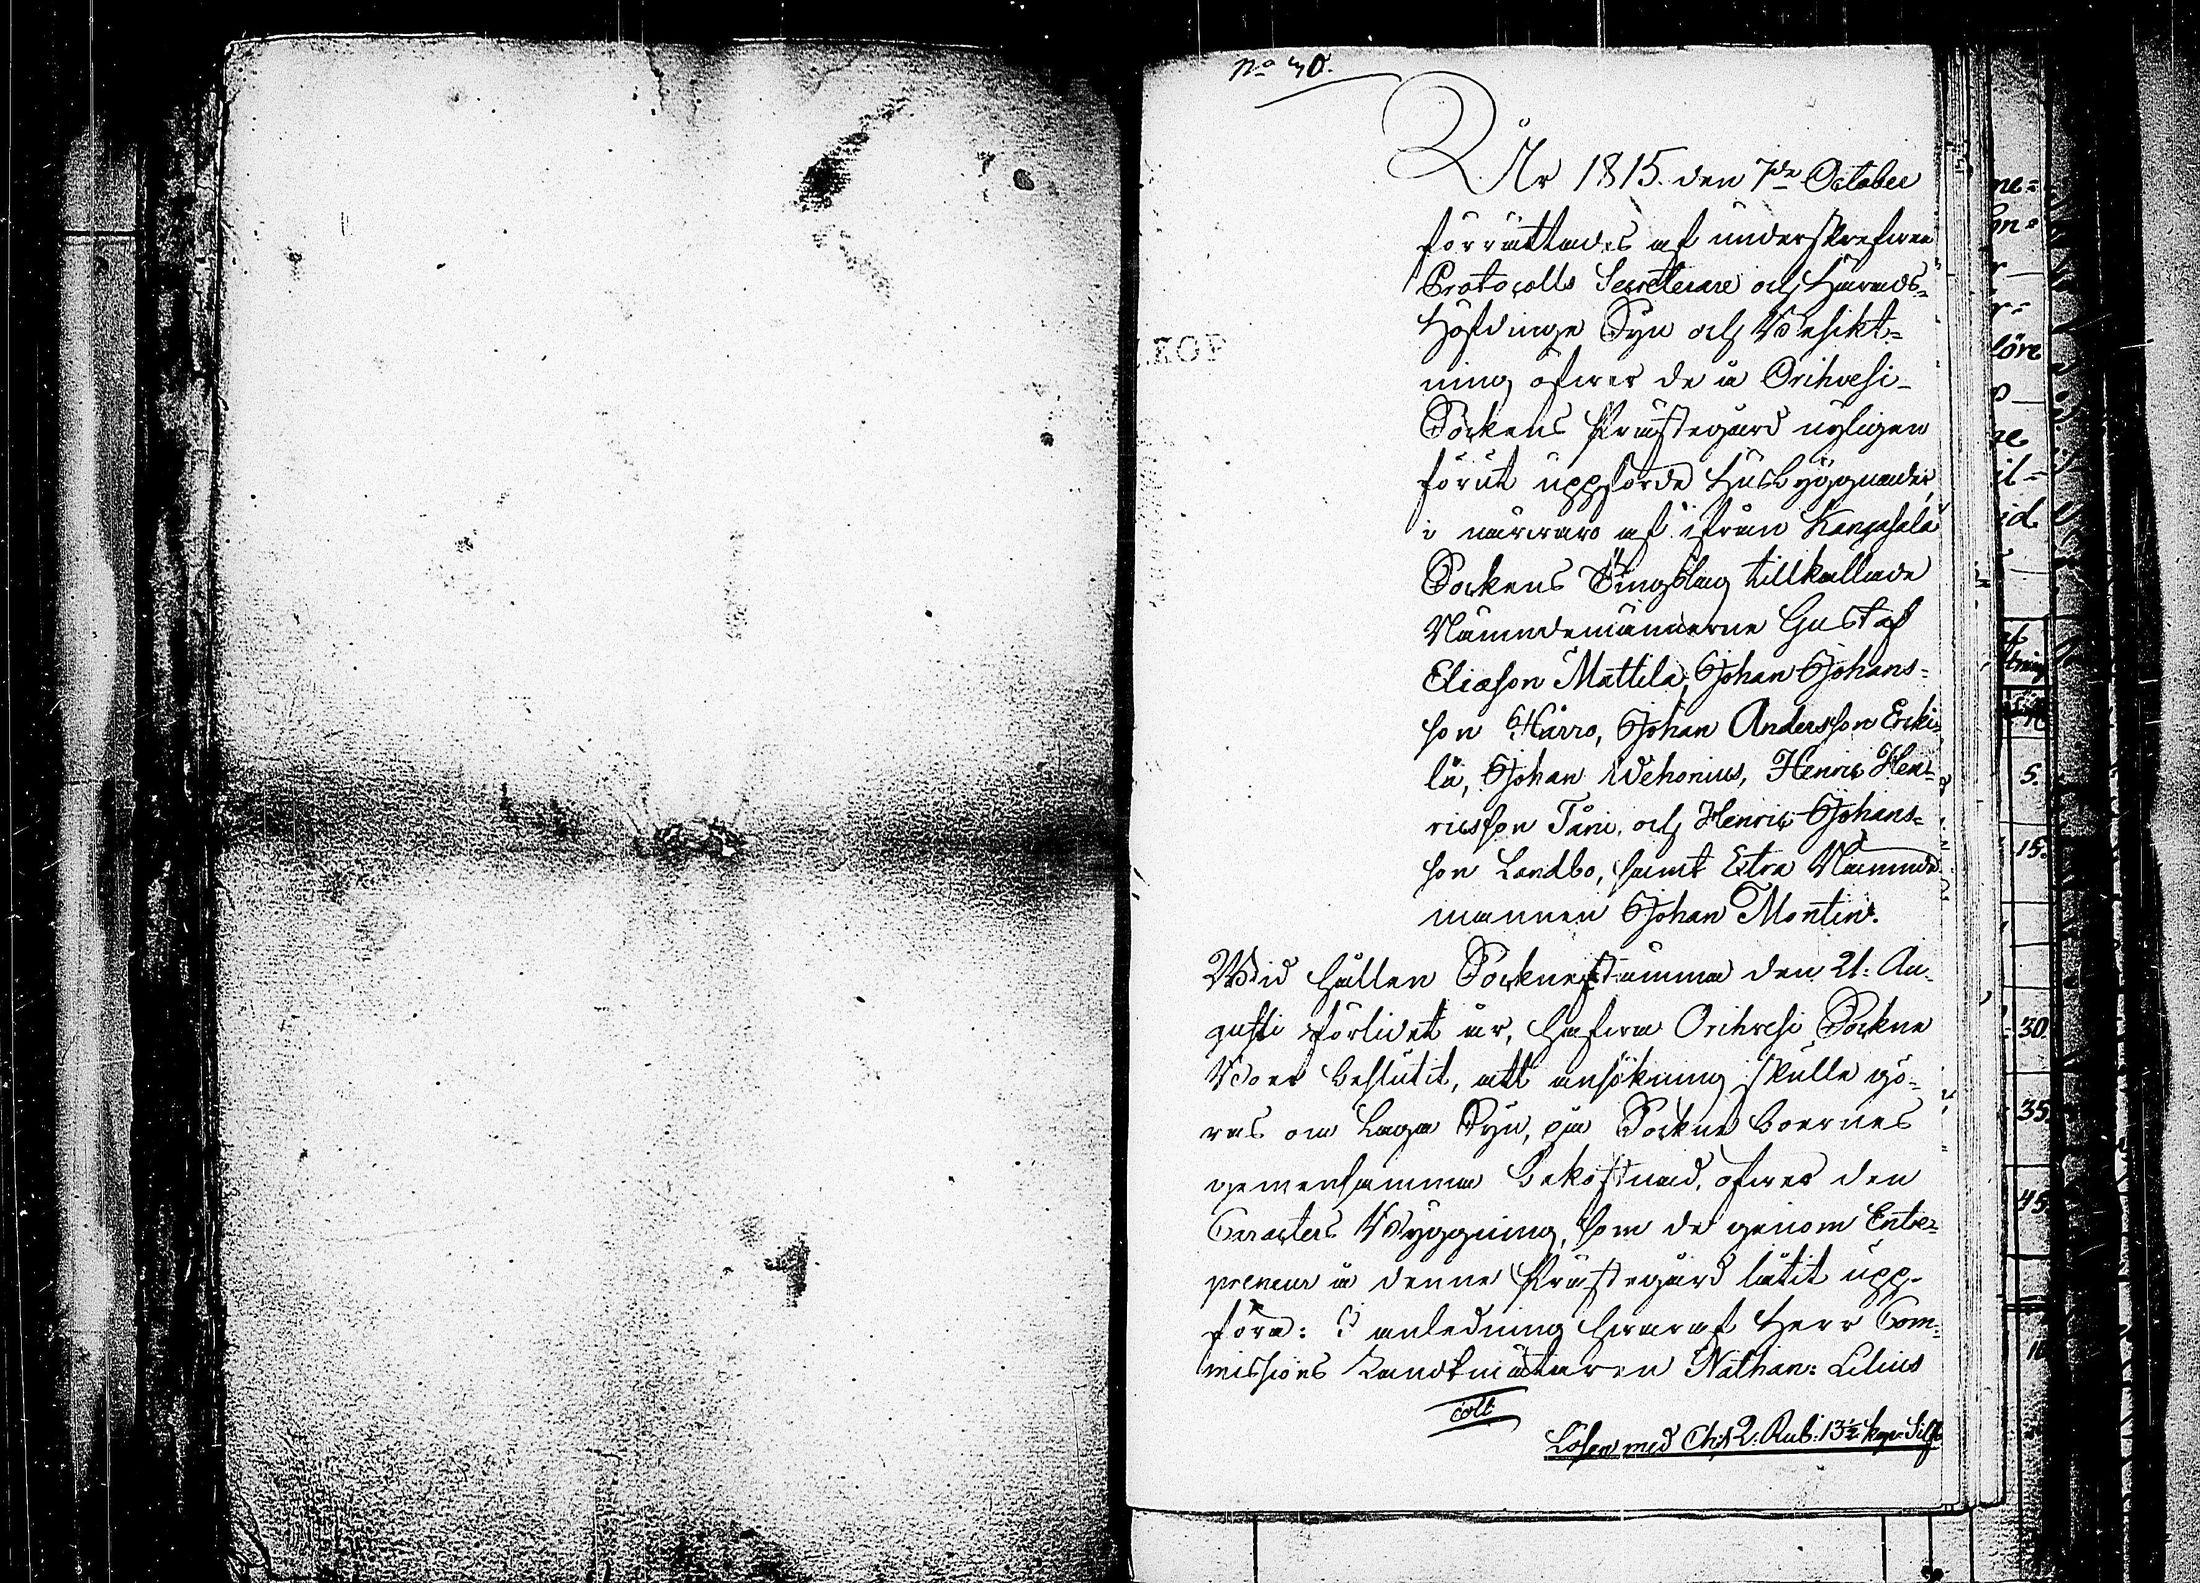 No 30.
År 1815. den 7de October
förrättades af underskrefven
Protocolls Secreterare och Härads-
Höfdinge Syn och Besikt-
ning öfwer de å Orihvesi
Sockens Prästegård nyligen
förut uppförde Husbyggnader,
i närvaro af ifrån Kangasala
Sockens Tingslag tillkallade
Nämndemännerne Gustaf
Eliasson Mattila, Johan Johans-
son Harro, Johan Andersson Ercki-
lä, Johan Wehonius, Henric Hen-
ricsson Tåni, och Henric Johans-
son Landbo, samt Extra Nämnde
mannen Johan Montin.
Wid hållen Socknestämma den 21. Au-
gusti förlidet år, hafwa Orihvesi Sockne
Boer beslutit, att ansökning skulle gö-
ras om Laga Syn, på Sockne boernes
gemensamma bekostnad, öfwer den
Caracters Byggning, som de genom Entre-
preneur å denne Prästegård låtit upp-
föra: I anledning hwaraf Herr Com-
missions Landtmätaren Nathan: Lilius
coll
Lösen med Ch: 2. Rub. 13½ kop. Silf